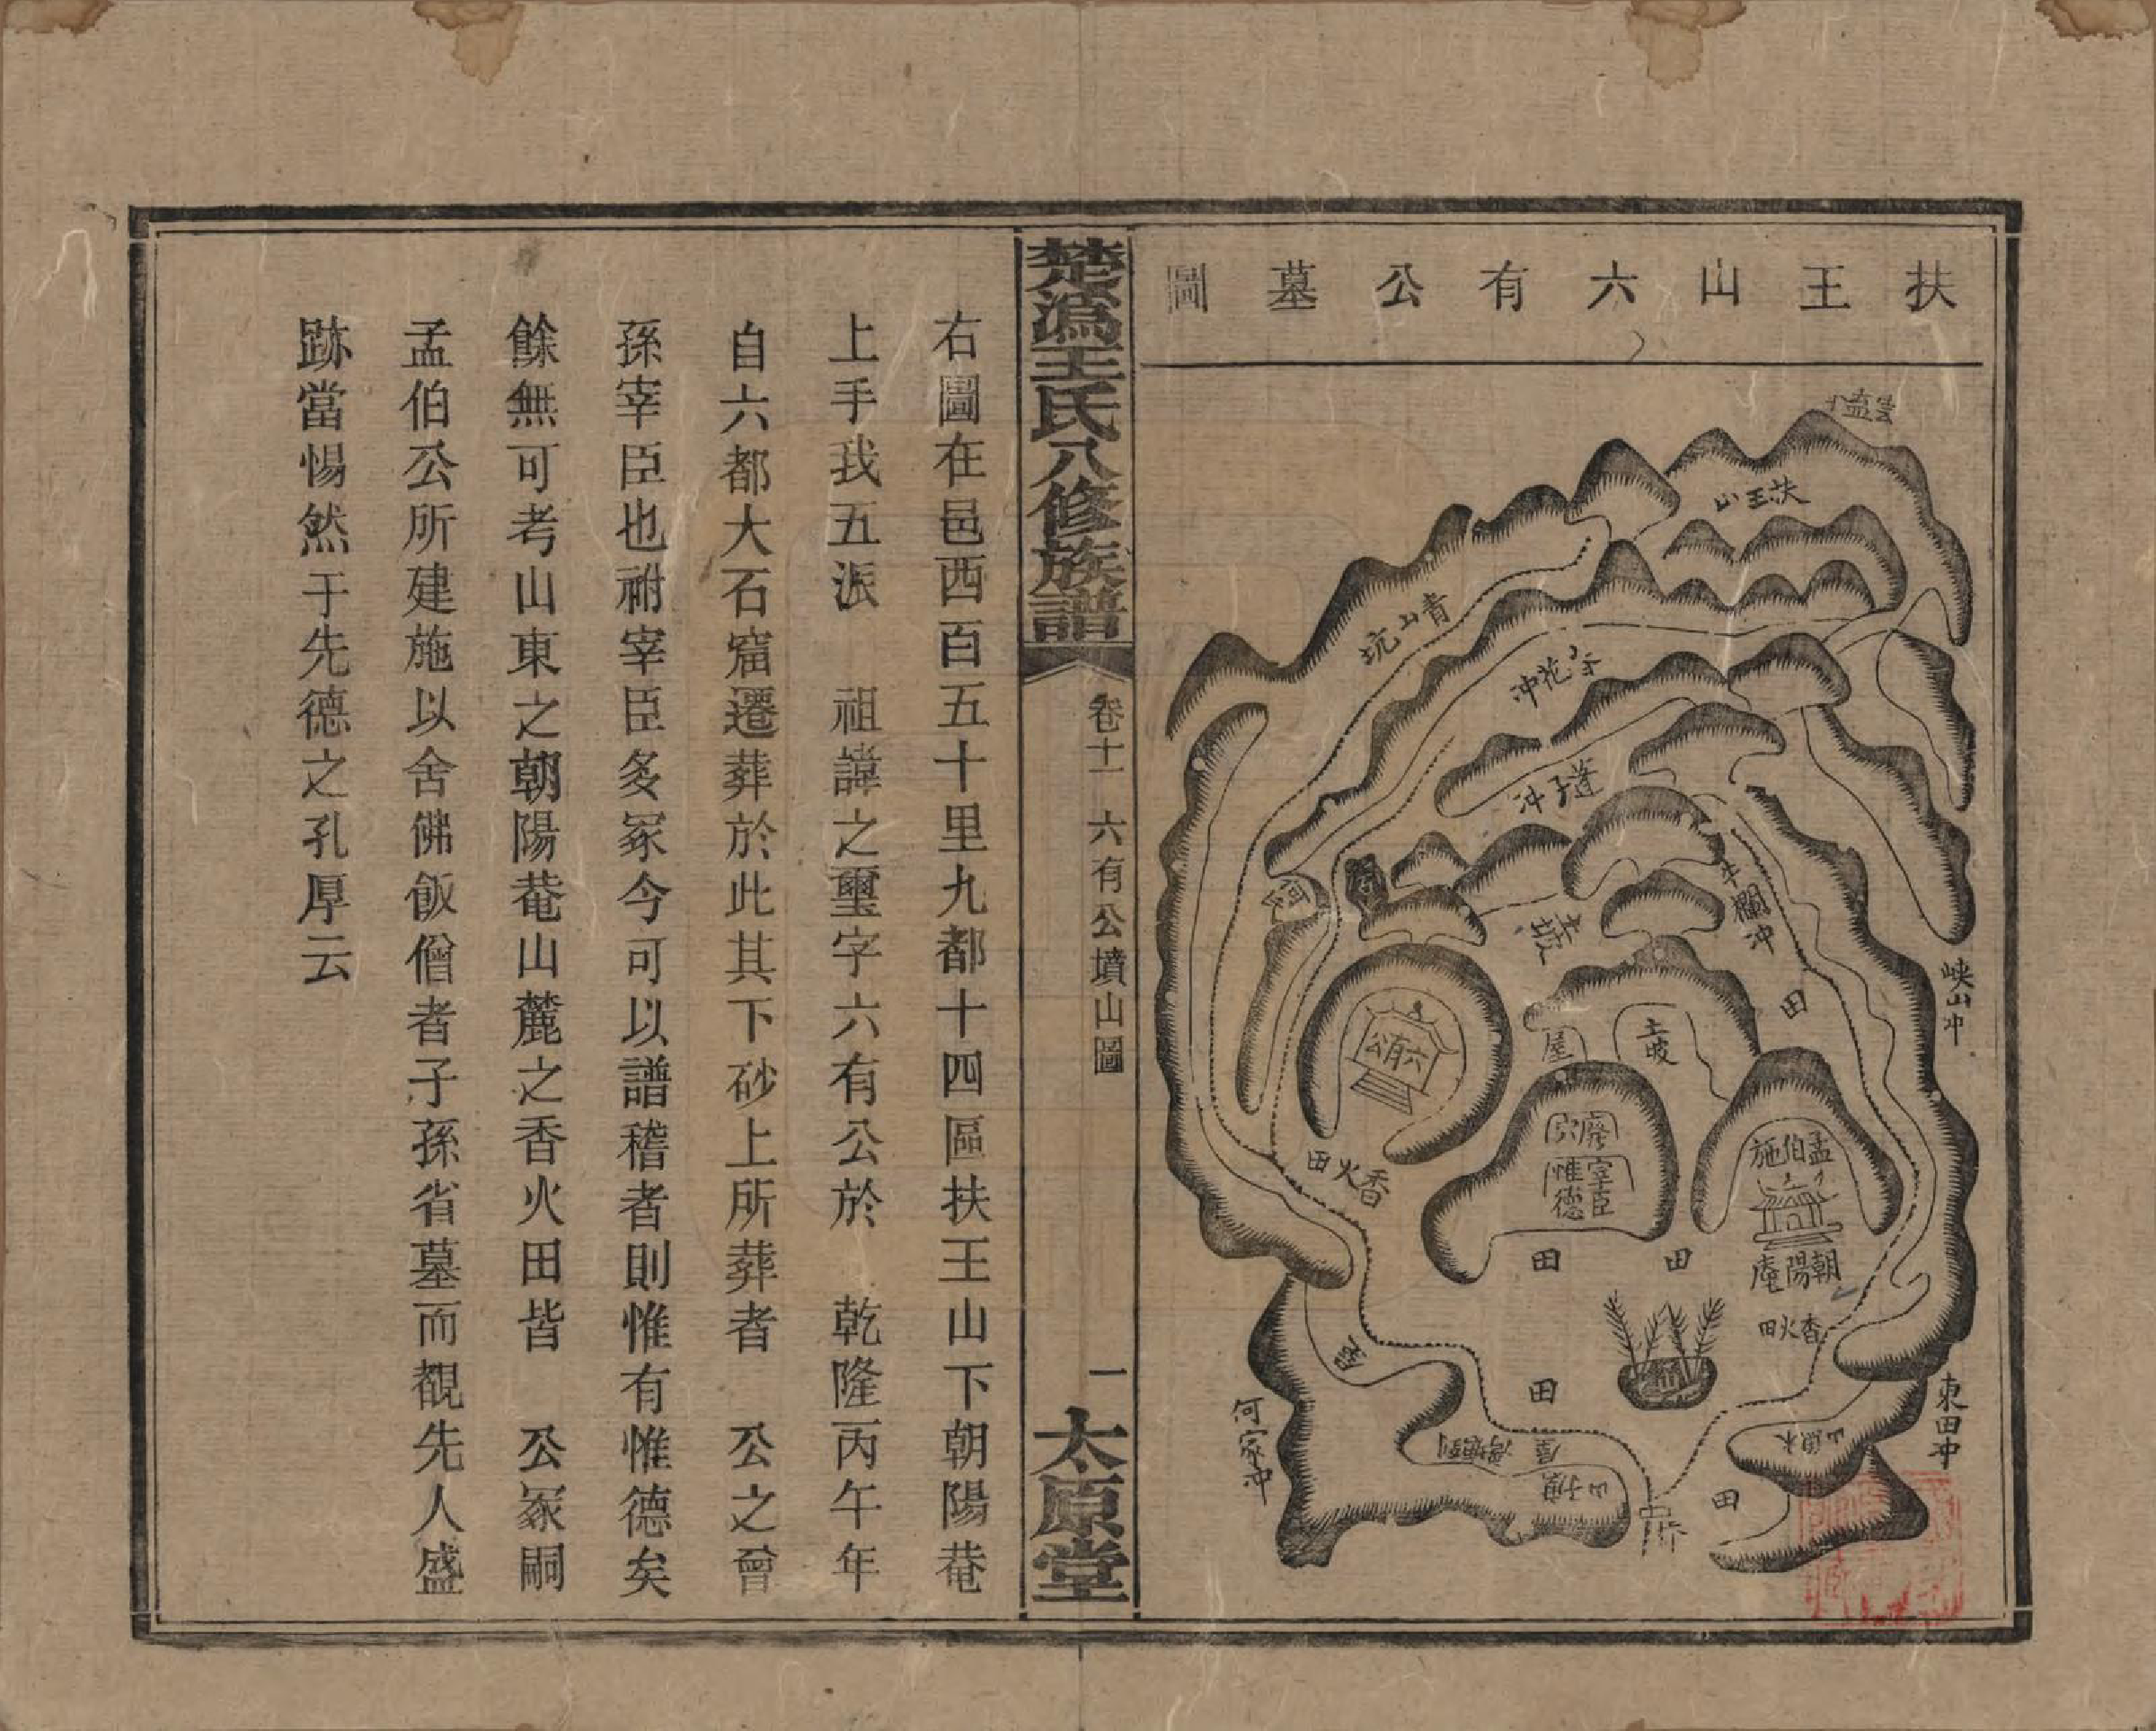 扶王山六有公墓圖
扶王山
青山坑
花沖
蓬子沖
牛欄沖
峡山冲
田
土坡
屋
六有公
香火田
廢穴
宰臣
惟德
孟伯施
朝陽庵
香火田
田
田
田
何家冲
東田冲
屋
田
楚溈王氏八修族譜
卷十一
六有公墳山圖
一
太原堂
右圖在邑西百五十里九都十四區扶王山下朝陽菴
上手我五派 祖諱之璽字六有公於 乾隆丙午年
自六都大石窟遷葬於此其下砂上所葬者 公之曾
孫宰臣也祔宰臣多冢今可以譜稽者則惟有惟德矣
餘無可考山東之朝陽菴山麓之香火田皆 公冢嗣
孟伯公所建施以舍佛飯僧者子孫省墓而覩先人盛
跡當惕然于先德之孔厚云